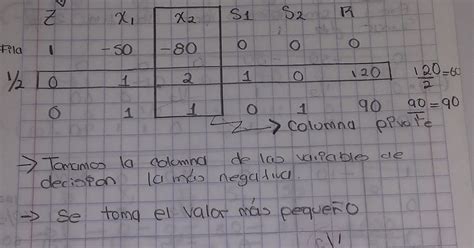 Z X₁ X₂ S1 S2 R
Fila 1 -50 -80 0 0 0
1/2 0 1 2 1 0 120 120/2=60
0 1 1 0 1 90 90/1=90
→ columna pivote
→ Tomamos la columna de las variables de
decision la más negativa.
→ se toma el valor más pequeño